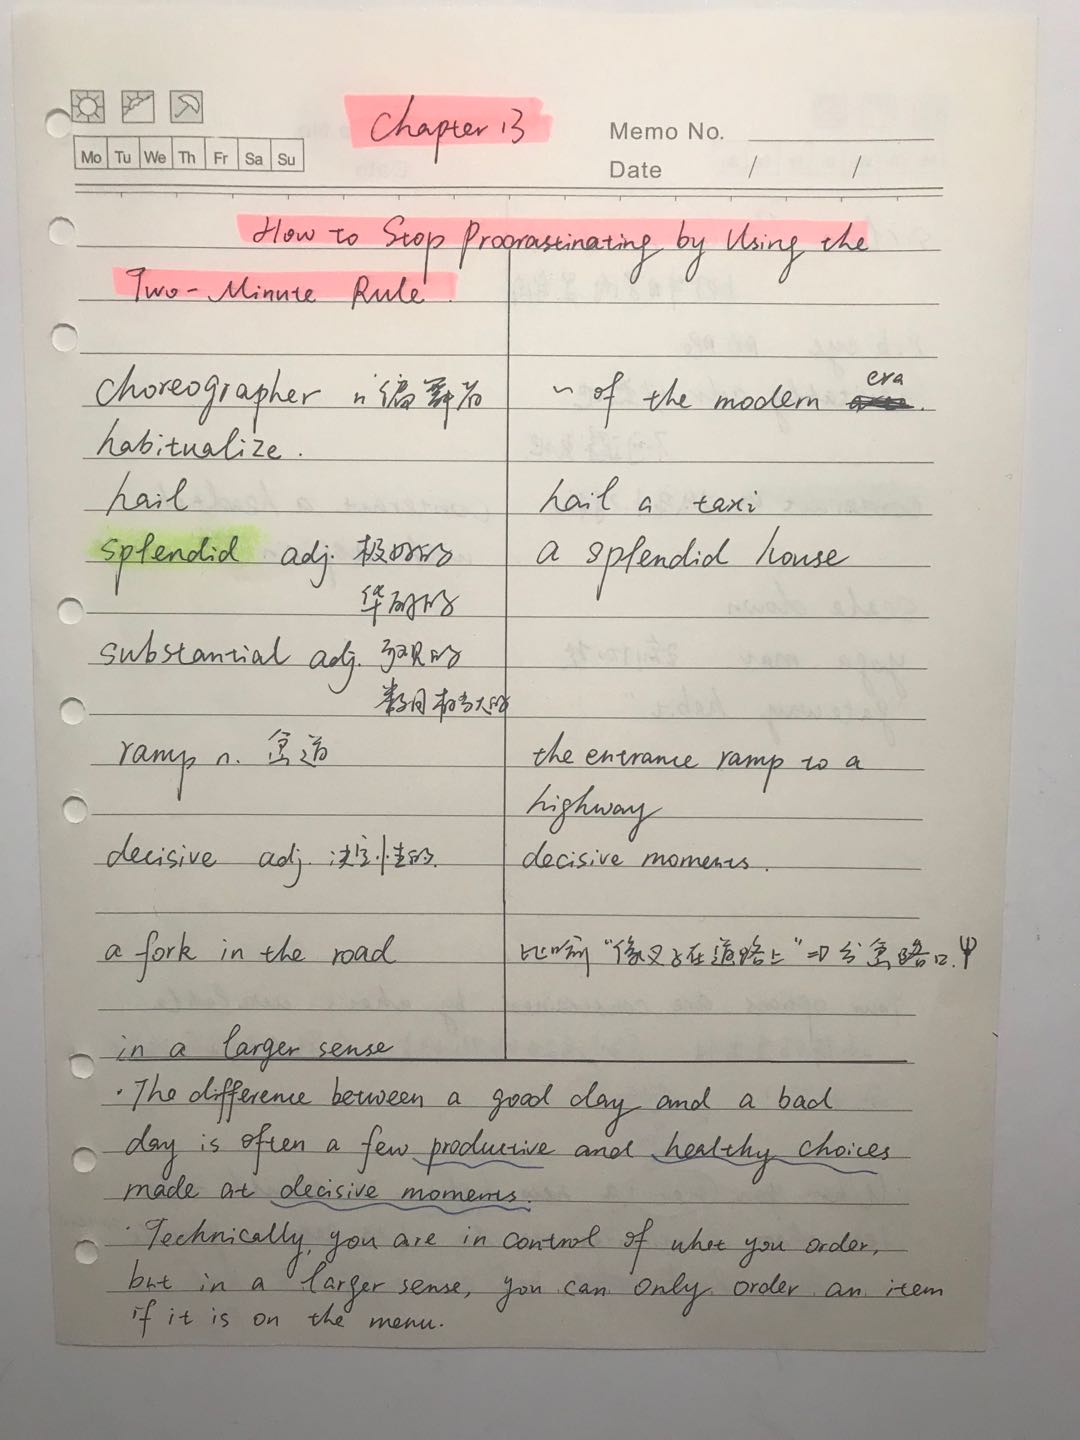 Chapter 13
Memo No.
Mo Tu We Th Fr Sa Su
Date / /
How to Stop Procrastinating by Using the
Two-Minute Rule.
choreographer n 编舞者
~ of the modern era.
habitualize.
hail
hail a taxi
splendid adj. 极好的
a splendid house
华丽的
substantial adj. 客观的
数目相当大的
ramp n. 匝道
the entrance ramp to a
highway
decisive adj. 决定性的.
decisive moments.
a fork in the road
比喻 "像叉子在道路上" ⇒ 分岔路口.Ψ
in a larger sense
· The difference between a good day and a bad
day is often a few productive and healthy choices
made at decisive moments.
· Technically, you are in control of what you order,
but in a larger sense, you can only order an item
if it is on the menu.